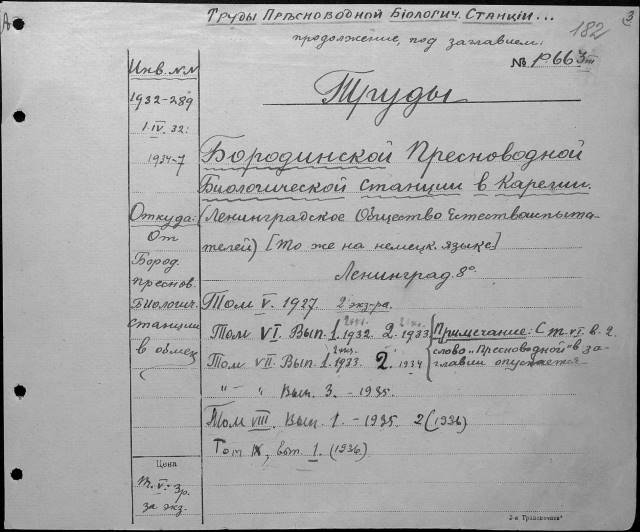 Труды Прѣсноводной Біологич. Станціи...
182
продолжение, под заглавием:
№ P663 III
Труды
Бородинской Пресноводной
Биологической станции в Карелии.
(Ленинградское Общество Естествоиспыта-
телей) [То же на немецк. языке]
Ленинград. 8º
Том V. 1927. 2 экз-ра.
Том VI. Вып. 1. 1932. 2. 1933.
Том VII. Вып. 1. 1933. 2. 1934
"– " Вып. 3. – 1935.
Том VIII. Вып. 1. – 1935. 2 (1936)
Том IX, вып. 1. (1936)
Примечание: С т. VI. в. 2.
слово „Пресноводной" в за-
главии опускается
Инв. №№
1932-289
1.IV.32:
1934-7
Откуда:
От
Бород.
преснов.
Биологич.
станции
в обмен
Цена
Т. V. 3р.
за экз.